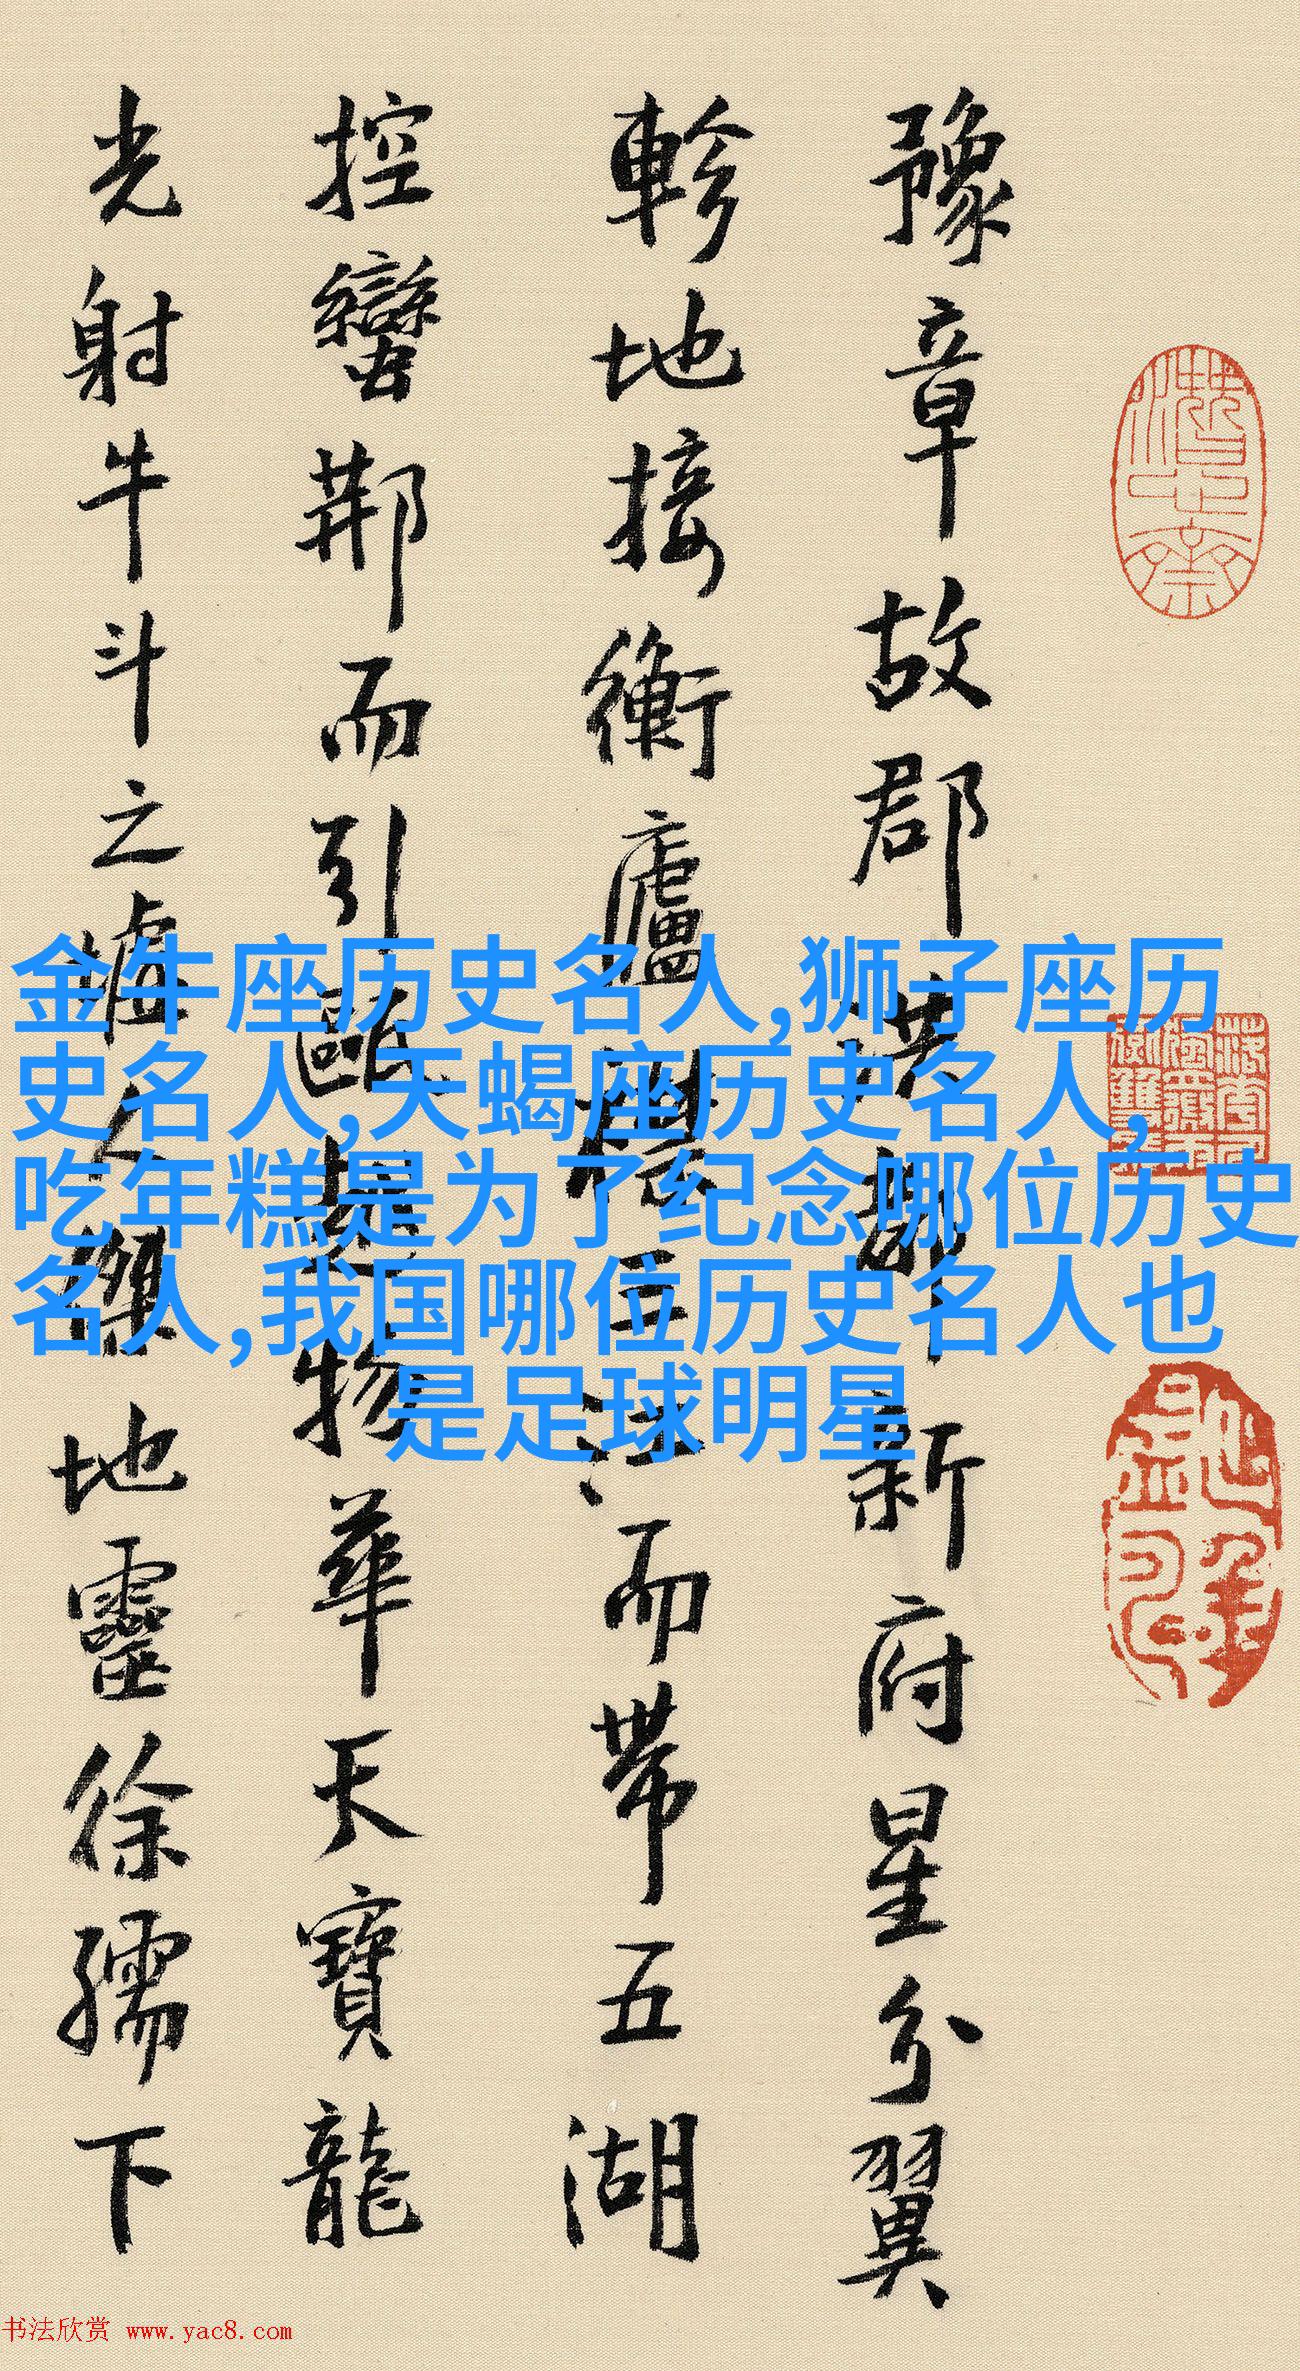 豫章故郡洪都新府星分翼
軫地接衡廬襟三江而帶五湖
控蠻荊而引甌越物華天寶龍
光射牛斗之墟人傑地靈徐孺下
金牛座历史名人,狮子座历
史名人,天蝎座历史名人,
吃年糕是为了纪念哪位历史
名人,我国哪位历史名人也
是足球明星
书法欣赏 www.yac8.com